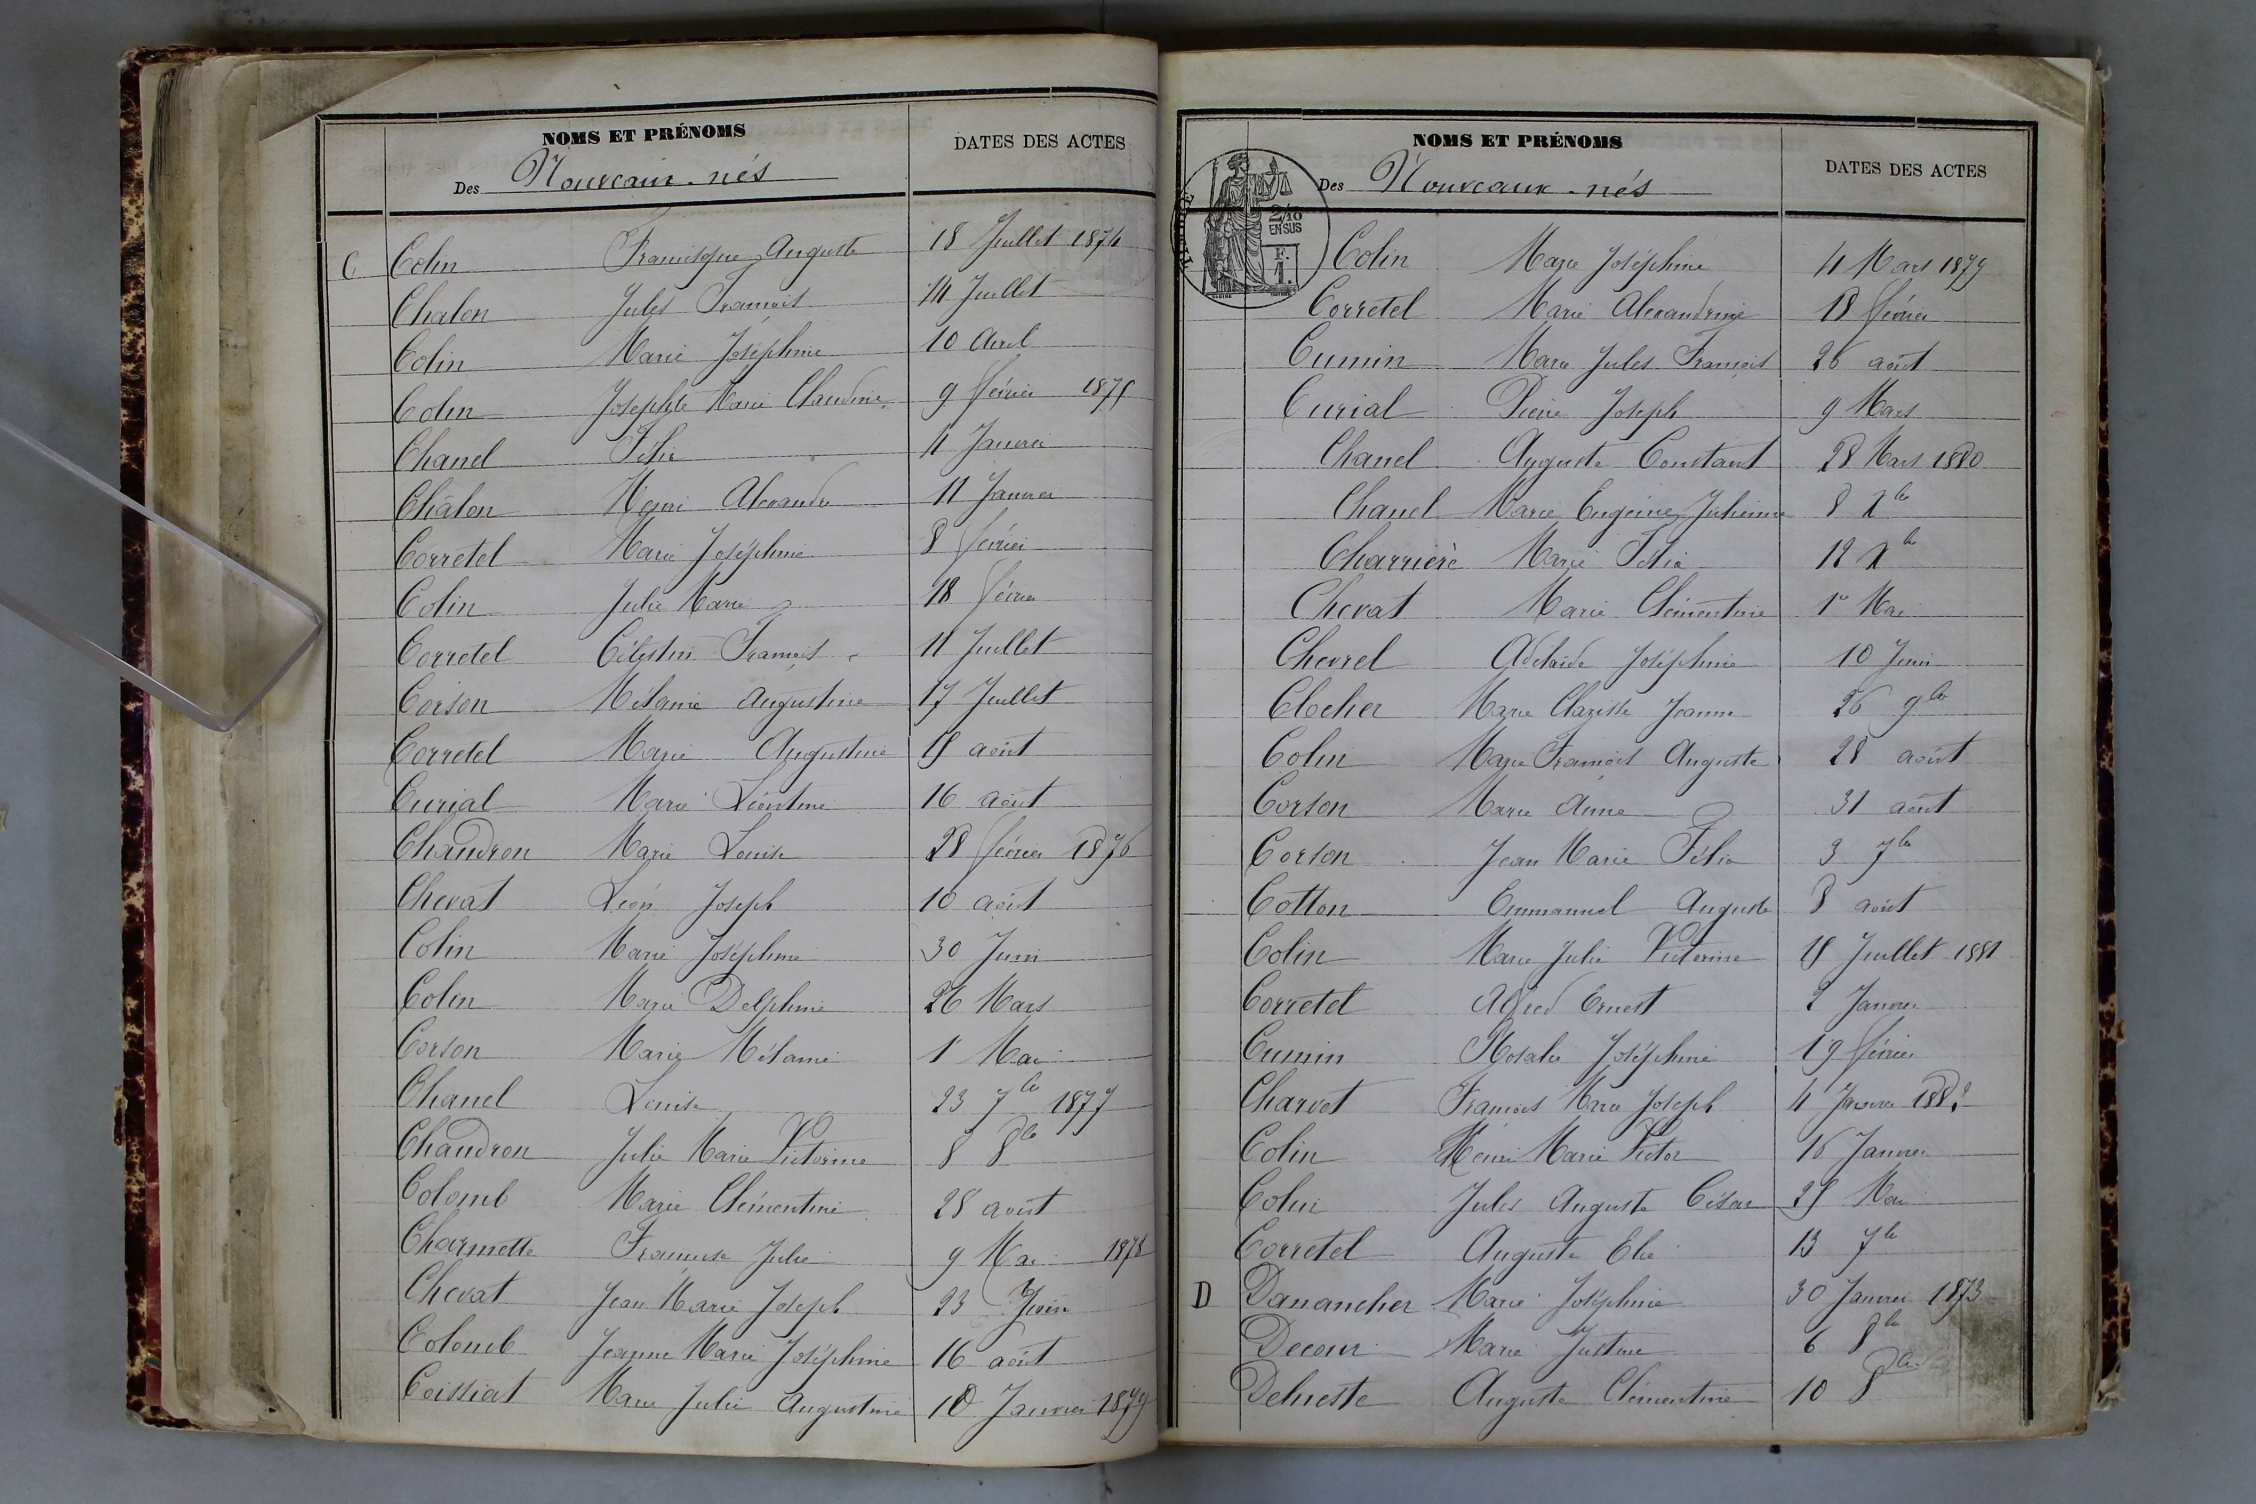 NOMS ET PRÉNOMS
DATES DES ACTES
Des Nouveaux-nés
C Colin Francisque Auguste 18 Juillet 1874
Chalon Jules François 14 Juillet
Colin Marie Joséphine 10 Avril
Colin Josephte Marie Claudine 9 février 1875
Chanel Félix 4 Janvier
Châlon Henri Alexandre 11 Janvier
Corretel Marie Joséphine 8 février
Colin Julie Marie 18 février
Corretel Célestin François 11 Juillet
Corson Mélanie Augustine 17 Juillet
Corretel Marie Augustine août
Curial Marie Léontine 16 août
Chaudron Marie Louise 28 février 1876
Chevat Léon Joseph 10 août
Colin Marie Joséphine 30 Juin
Colin Marie Delphine 26 Mars
Corson Marie Mélanie 1r Mai
Chanel Louise 23 7bre 1877
Chaudron Julie Marie Victorine 8 8bre
Colomb Marie Clémentine 28 août
Charmette Françoise Julie 9 Mai 1878
Chevat Jean Marie Joseph 23 Juin
Colomb Jeanne Marie Joséphine 16 août
Coissiat Marie Julie Augustine 10 Janvier 1879
NOMS ET PRÉNOMS
DATES DES ACTES
Des Nouveaux-nés
2/10
EN SUS
F.
1.
Colin Marie Joséphine 4 Mars 1879
Corretel Marie Alexandrine 18 février
Cumin Marie Jules François 26 août
Curial Pierre Joseph 9 Mars
Chanel Auguste Constant 28 Mars 1880
Chanel Marie Eugénie Julienne 8 Xbre
Charrière Marie Félix 12 Xbre
Chevat Marie Clémentine 1er Mai
Chevrel Adélaïde Joséphine 10 Juin
Clocher Marie Clarisse Jeanne 26 9bre
Colin Marie François Auguste 28 août
Corson Marie Anne 31 août
Corson Jean Marie Félix 3 7bre
Cotton Emmanuel Auguste 8 août
Colin Marie Julie Victorine Juillet 1881
Corretel Alfred Ernest 2 Janvier
Cumin Rosalie Joséphine 19 février
Charvet François Marie Joseph 4 Janvier 1882
Colin Henri Marie Victor 16 Janvier
Colin Jules Auguste César 25 Mai
Corretel Auguste Elie 13 7bre
D Danancher Marie Joséphine 30 Janvier 1873
Decour Marie Justine 6 8bre
Delueste Auguste Clémentine 10 8bre